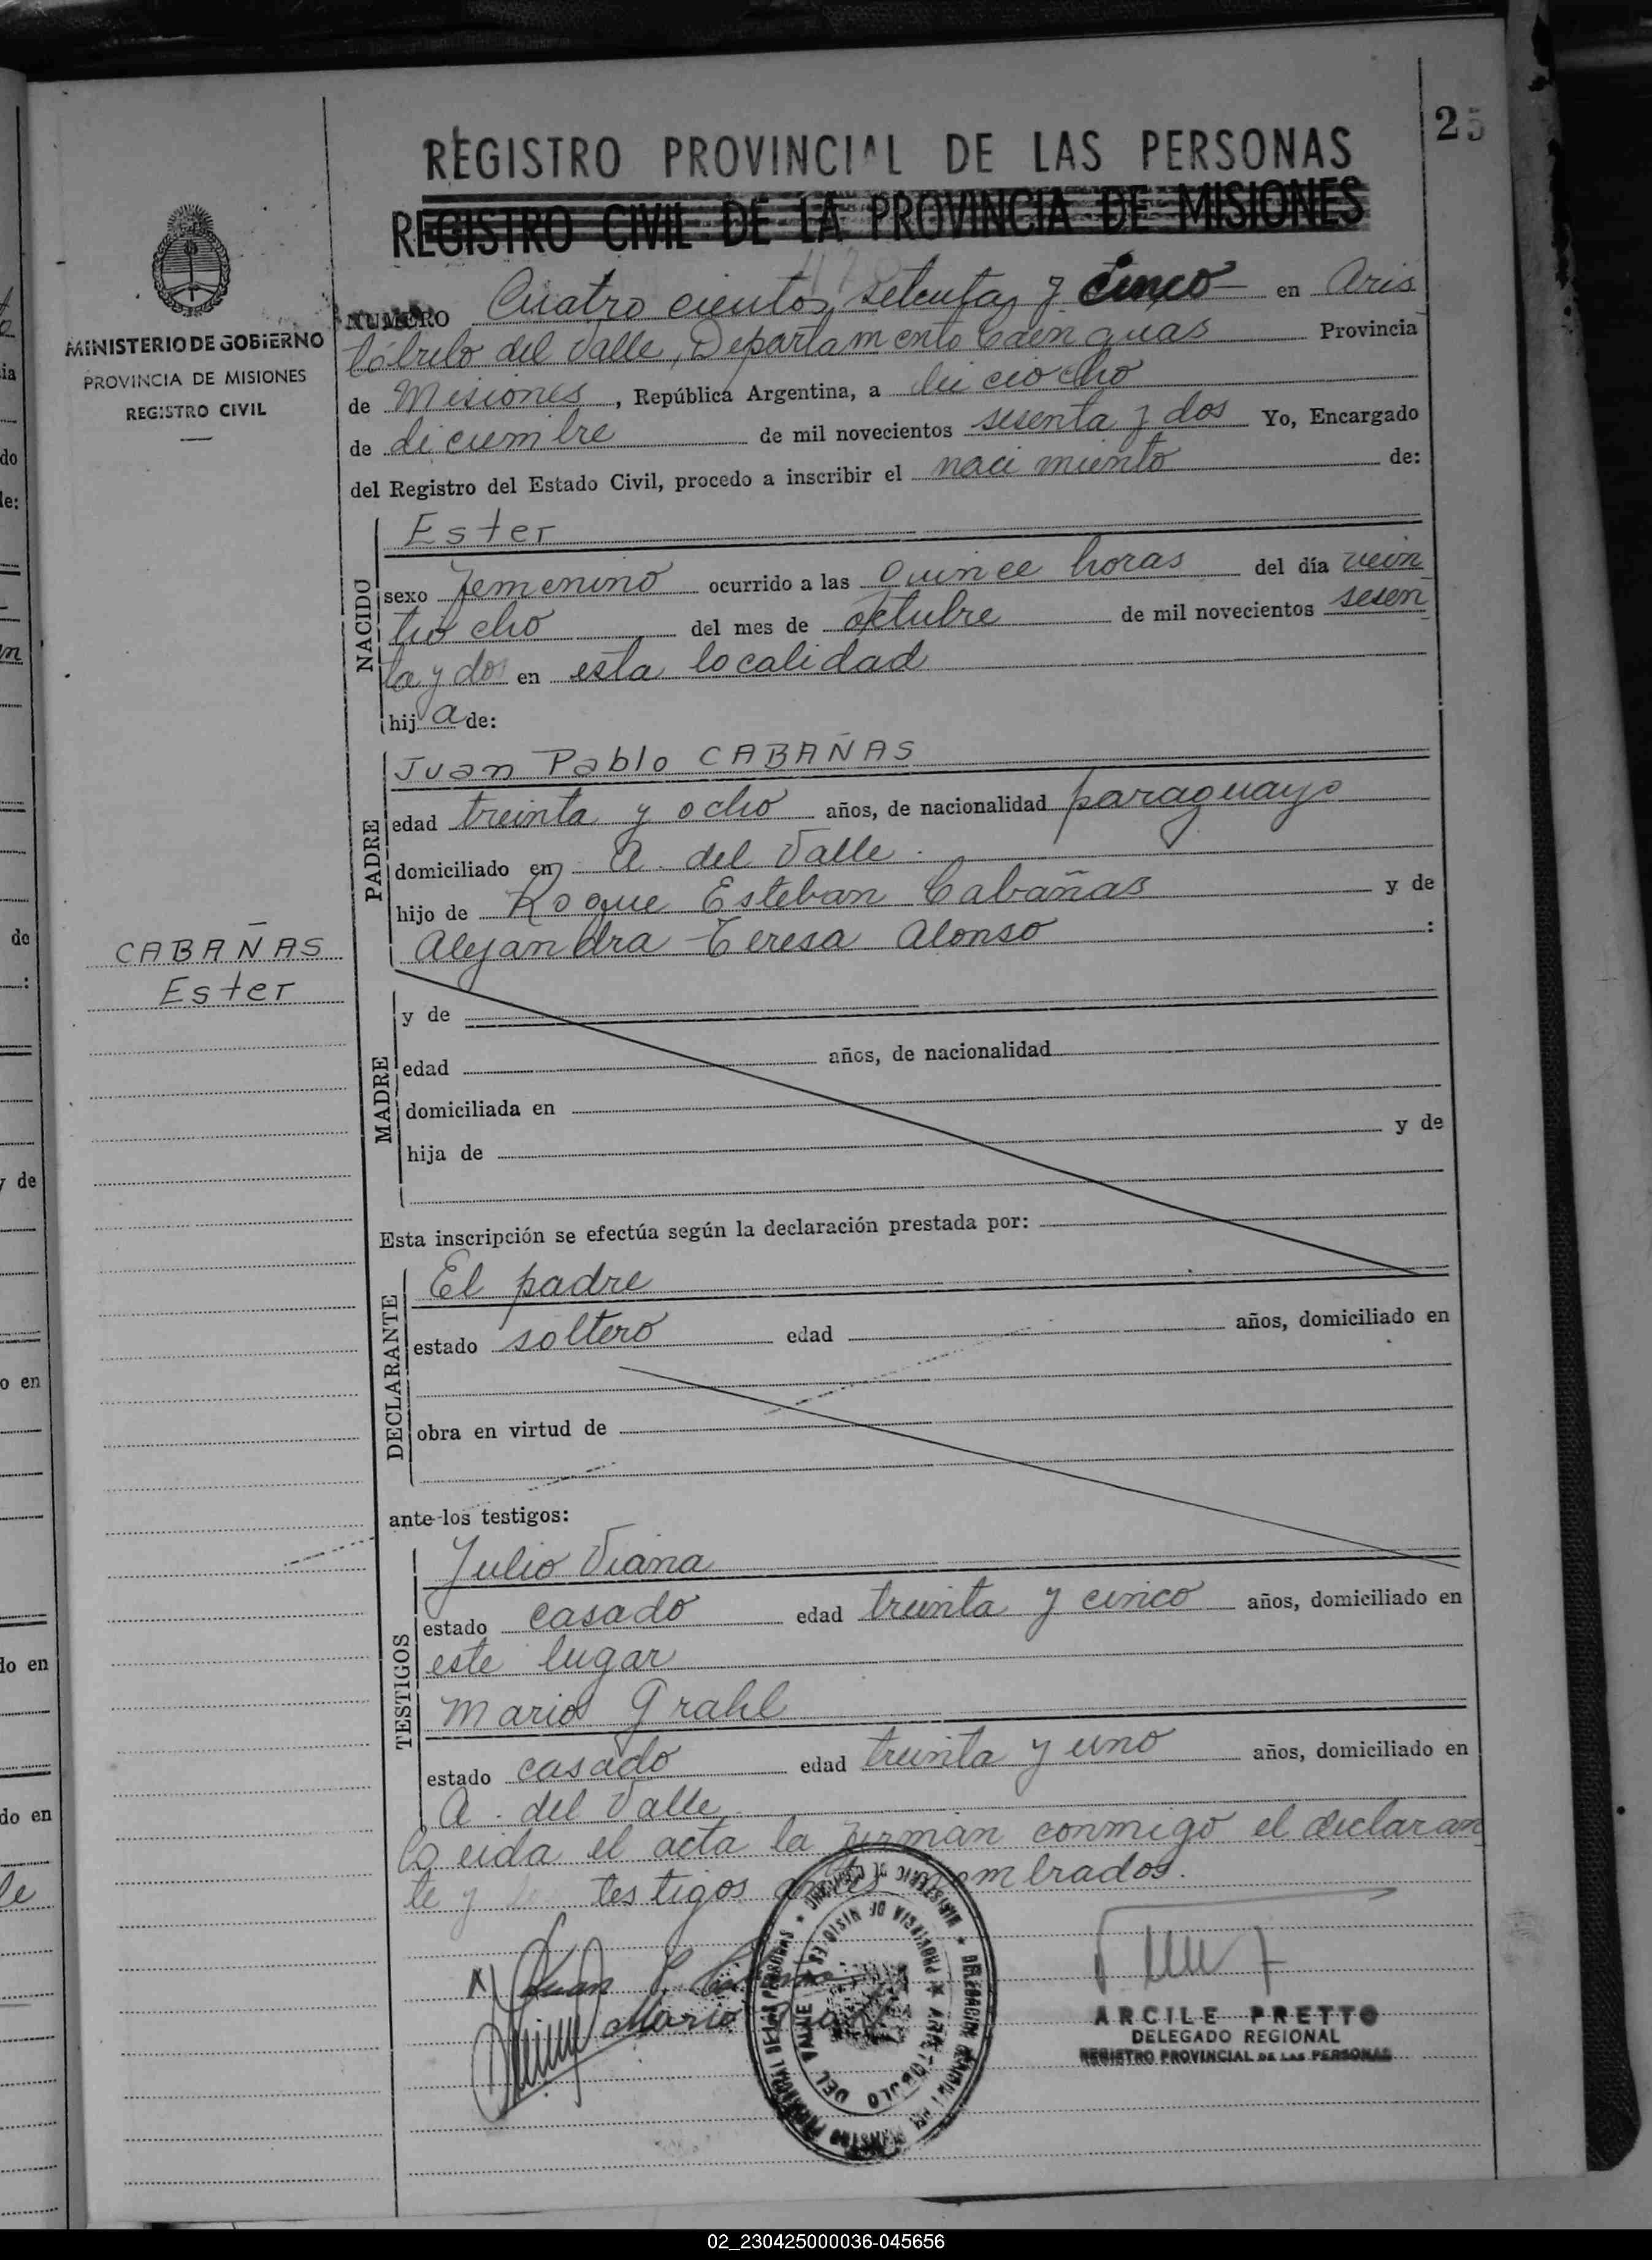 25
REGISTRO PROVINCIAL DE LAS PERSONAS
REGISTRO CIVIL DE LA PROVINCIA DE MISIONES
MINISTERIO DE GOBIERNO
PROVINCIA DE MISIONES
REGISTRO CIVIL
NUMERO Cuatro cientos setenta y cinco en Aris
tóbulo del Valle, Departamento Caenguas Provincia
de Misiones, República Argentina, a dieciocho
de diciembre de mil novecientos sesenta y dos Yo, Encargado
del Registro del Estado Civil, procedo a inscribir el naci miento de:
NACIDO
Ester
sexo femenino ocurrido a las quince horas del día vein
tiocho del mes de oktubre de mil novecientos sesen
ta y dos en esta localidad
hij a de:
PADRE
Juan Pablo CABAÑAS
edad treinta y ocho años, de nacionalidad paraguayo
domiciliado en A. del Valle.
hijo de Roque Esteban Cabañas y de
Alejandra Teresa Alonso :
CABAÑAS
Ester
MADRE
y de
edad años, de nacionalidad
domiciliada en
hija de y de
Esta inscripción se efectúa según la declaración prestada por:
DECLARANTE
El padre
estado soltero edad años, domiciliado en
obra en virtud de
ante los testigos:
TESTIGOS
Julio Viana
estado casado edad treinta y cinco años, domiciliado en
este lugar
Mario Grahl
estado casado edad treinta y uno años, domiciliado en
A. del Valle
Leida el acta la firman conmigo el declaran
te y los testigos antes nombrados.
Juan P.
Mario
ARCILE PRETTO
DELEGADO REGIONAL
REGISTRO PROVINCIAL DE LAS PERSONAS
02_230425000036-045656